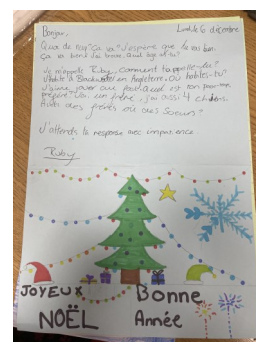 Bonjour, Lundi le 6 décembre
Quoi de neuf? Ça va? J'espère que tu vas bien.
Ça va bien? J'ai treize, quel âge as tu?
Je m'appelle Ruby, comment t'appelle-tu?
J'habite à en Angleterre, Où habites-tu?
J'aime jouer au football est ton
préféré? J'ai un frère, j'ai aussi 4 chiens.
Avez des frères ou des Soeurs?
J'attends la response avec impatience
Ruby
JOYEUX
NOËL
Bonne
Année